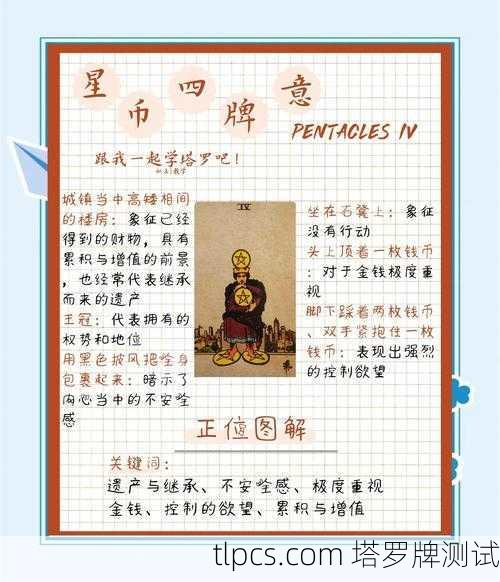 星币四牌意
PENTACLES IV
跟我一起学塔罗吧!
城镇当中高矮相间
的楼房:象征已经
得到的财物,具有
累积与增值的前景
,也经常代表继承
而来的遗产
王冠:代表拥有的
权势和地位
用黑色披风把全身
包裹起来:暗示了
内心当中的不安全
感
IV
坐在石凳上:象征
没有行动
头上顶着一枚钱币
:对于金钱极度重
视
脚下踩着两枚钱币
、双手紧抱住一枚
钱币:表现出强烈
的控制欲望
正位图解
关键词:
遗产与继承、不安全感、极度重视
金钱、控制的欲望、累积与增值
tlpcs.com 塔罗牌测试